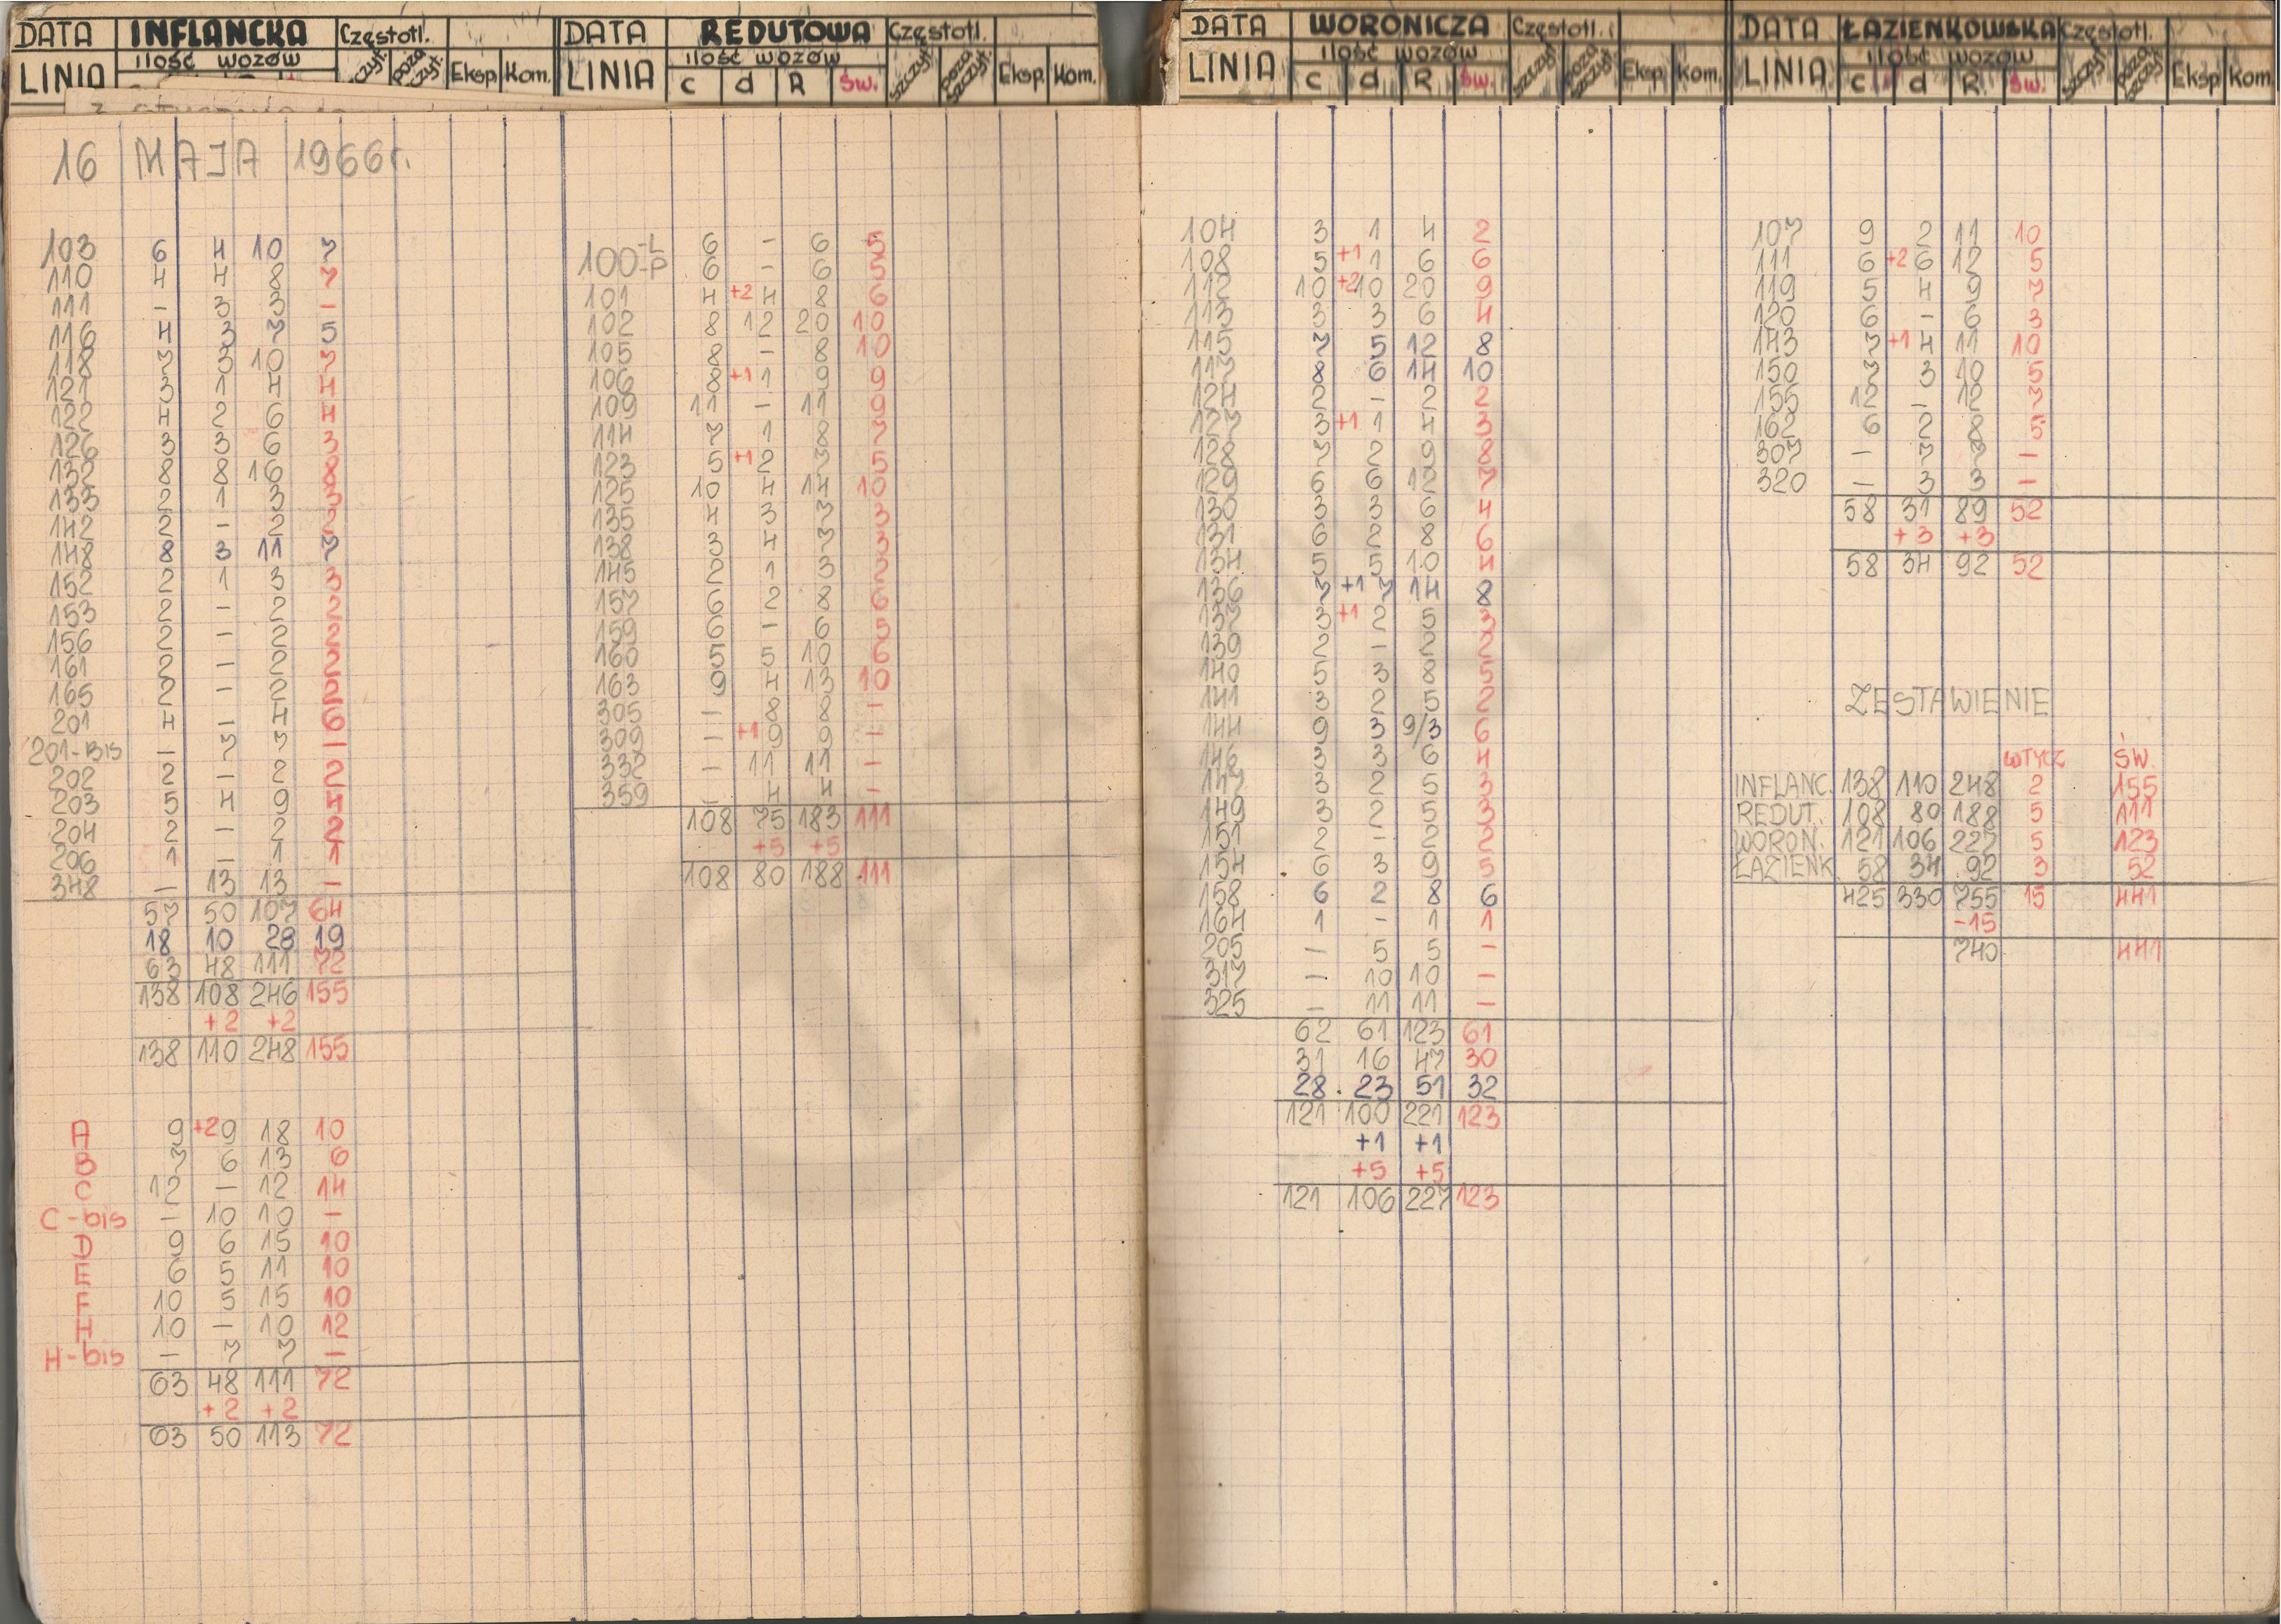 DATA INFLANCKA Częstotl.
ilość wozów
LINIA szczyt. poza szczyt. Eksp. Kom.
DATA REDUTOWA Częstotl.
ilość wozów
LINIA c d R Św. szczyt. poza szczyt. Eksp. Kom.
DATA WORONICZA Częstotl.
ilość wozów
LINIA c d R Św. szczyt. poza szczyt. Eksp. Kom.
DATA ŁAZIENKOWSKA Częstotl.
ilość wozów
LINIA c d R Św. szczyt. poza szczyt. Eksp. Kom.
16 MAJA 1966 r.
103 6 4 10 7
110 4 4 8 7
111 – 3 3 –
116 4 3 7 5
118 7 3 10 7
121 3 1 4 4
122 4 2 6 4
126 3 3 6 3
132 8 8 16 8
133 2 1 3 3
142 2 – 2 2
148 8 3 11 7
152 2 1 3 3
153 2 – 2 2
156 2 – 2 2
161 2 – 2 2
165 2 – 2 2
201 4 – 4 6
201-Bis – 7 7 –
202 2 – 2 2
203 5 4 9 4
204 2 – 2 2
206 1 – 1 1
348 – 13 13 –
57 50 107 64
18 10 28 19
63 48 111 72
138 108 246 155
+2 +2
138 110 248 155
A 9 +2 9 18 10
B 7 6 13 6
C 12 – 12 14
C-bis – 10 10 –
D 9 6 15 10
E 6 5 11 10
F 10 5 15 10
H 10 – 10 12
H-bis – 7 7 –
63 48 111 72
+2 +2
63 50 113 72
100-L 6 – 6 5
-P 6 – 6 5
101 4 +2 4 8 6
102 8 12 20 10
105 8 – 8 10
106 8 +1 1 9 9
109 11 – 11 9
114 7 1 8 7
123 5 +1 2 7 5
125 10 4 14 10
135 4 3 7 3
138 3 4 7 3
145 2 1 3 2
157 6 2 8 6
159 6 – 6 5
160 5 5 10 6
163 9 4 13 10
305 – 8 8 –
309 – +1 9 9 –
332 – 11 11 –
359 – 4 4 –
108 75 183 111
+5 +5
108 80 188 111
104 3 1 4 2
108 5 +1 1 6 6
112 10 +2 10 20 9
113 3 3 6 4
115 7 5 12 8
117 8 6 14 10
124 2 – 2 2
127 3 +1 1 4 3
128 7 2 9 8
129 6 6 12 7
130 3 3 6 4
131 6 2 8 6
134 5 5 10 4
136 7 +1 7 14 8
137 3 +1 2 5 3
139 2 – 2 2
140 5 3 8 5
141 3 2 5 2
144 9 3 9/3 6
146 3 3 6 4
147 3 2 5 3
149 3 2 5 3
151 2 – 2 2
154 6 3 9 5
158 6 2 8 6
164 1 – 1 1
205 – 5 5 –
317 – 10 10 –
325 – 11 11 –
62 61 123 61
31 16 47 30
28 23 51 32
121 100 221 123
+1 +1
+5 +5
121 106 227 123
107 9 2 11 10
111 6 +2 6 12 5
119 5 4 9 7
120 6 – 6 3
143 7 +1 4 11 10
150 7 3 10 5
155 12 – 12 7
162 6 2 8 5
307 – 7 7 –
320 – 3 3 –
58 31 89 52
+3 +3
58 34 92 52
ZESTAWIENIE
WTYCZ ŚW.
INFLANC. 138 110 248 2 155
REDUT. 108 80 188 5 111
WORON. 121 106 227 5 123
ŁAZIENK. 58 34 92 3 52
425 330 755 15 441
-15
740 441